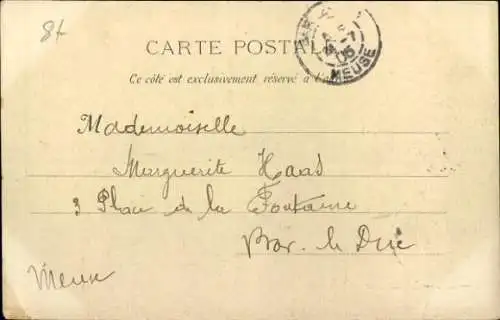 8t
CARTE POSTALE
BAR
5-7
05
MEUSE
Ce côté est exclusivement réservé à l'a
Mademoiselle
Marguerite Haas
3 Place de la Fontaine
Bar-le Duc
Meuse